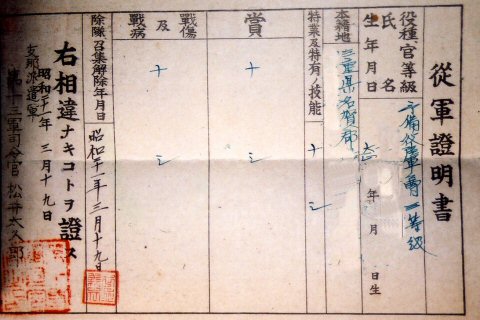 從軍證明書
役種官等級 予備役陸軍
氏名
生年月日 年 月 日生
本籍地 三重県名賀郡
特業及特有ノ技能 ナシ
賞 ナシ
戰傷及戰病 ナシ
除隊召集解除年月日 昭和二十一年三月十九日
右相違ナキコトヲ證ス
昭和二十一年三月十九日
支那派遣軍
第十三軍司令官 松井太久郎